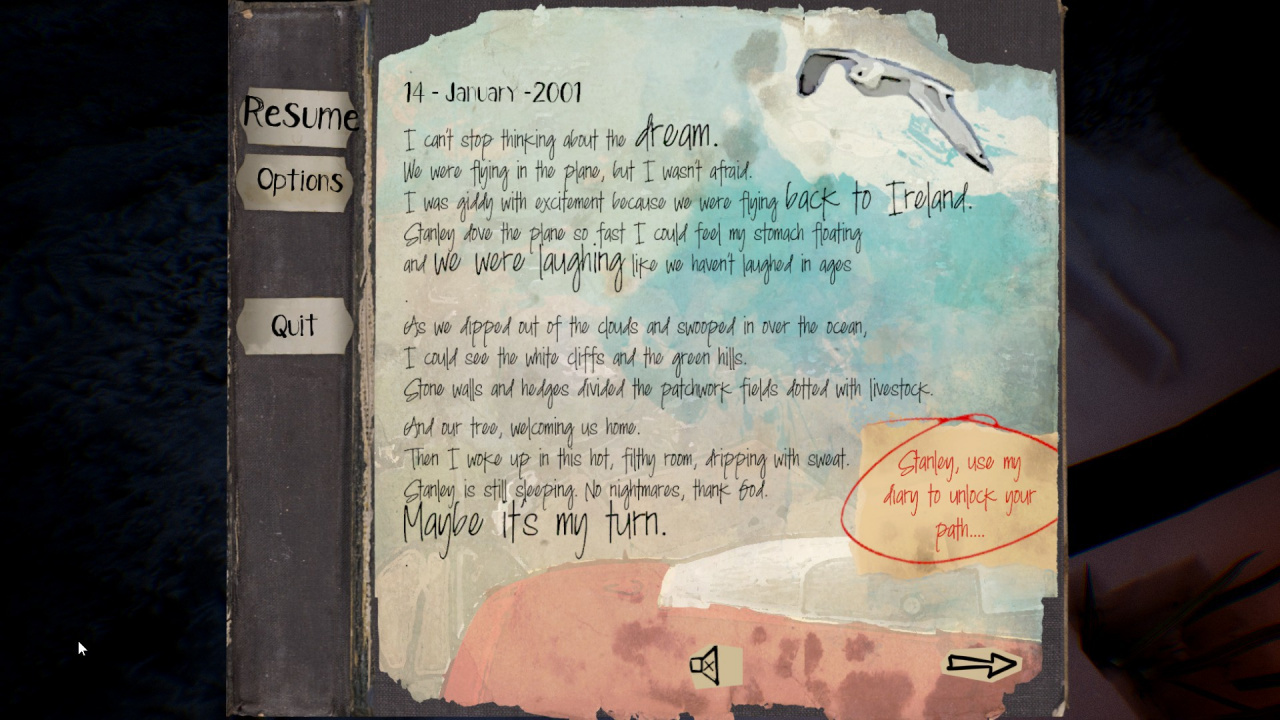 Resume
Options
Quit
14 - January -2001
I can't stop thinking about the dream.
We were flying in the plane, but I wasn't afraid.
I was giddy with excitement because we were flying back to Ireland.
Stanley dove the plane so fast I could feel my stomach floating
and we were laughing like we haven't laughed in ages
.
As we dipped out of the clouds and swooped in over the ocean,
I could see the white cliffs and the green hills.
Stone walls and hedges divided the patchwork fields dotted with livestock.
And our tree, welcoming us home.
Then I woke up in this hot, filthy room, dripping with sweat.
Stanley is still sleeping. No nightmares, thank God.
Maybe it's my turn.
.
Stanley, use my
diary to unlock your
path....